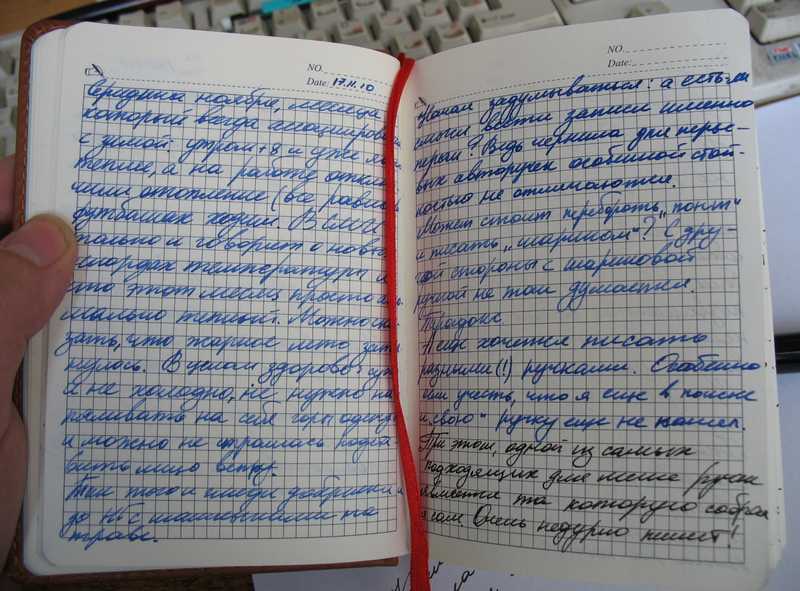 NO.
Date: 17.11.10
Середина ноября, месяца
который всегда ассоциировал
с зимой: утром +8 и уже
теплее, а на работе отклю-
чили отопление (все равно в
футболках ходим. В
только и говорят о новых
рекордах температуры и
что этот месяц просто
мально теплый. Можно ска-
зать, что жаркое лето затя-
нулось. В целом здорово:
и не холодно, не нужно на-
пяливать на себя горы одежды
и можно не страшась подста-
вить лицо ветру.
Так того и гляди доберемся и
до НГ с шашлыками на
траве.
NO.
Date:
Начал задумываться: а есть ли
смысл вести записи именно
пером? Ведь чернила для перье-
вых авторучек особенной стой-
костью не отличаются.
Может стоит перебороть "понт"
и писать "шариком"? С дру-
гой стороны с шариковой
ручкой не так думается.
Парадокс
А еще хочется писать
разными(!) ручками. Особенно
если учесть, что я еще в поиске
и "свою" ручку еще не нашел.
При этом, одной из самых
подходящих для меня ручек
является та которую собрал
я сам Очень недурно пишет!